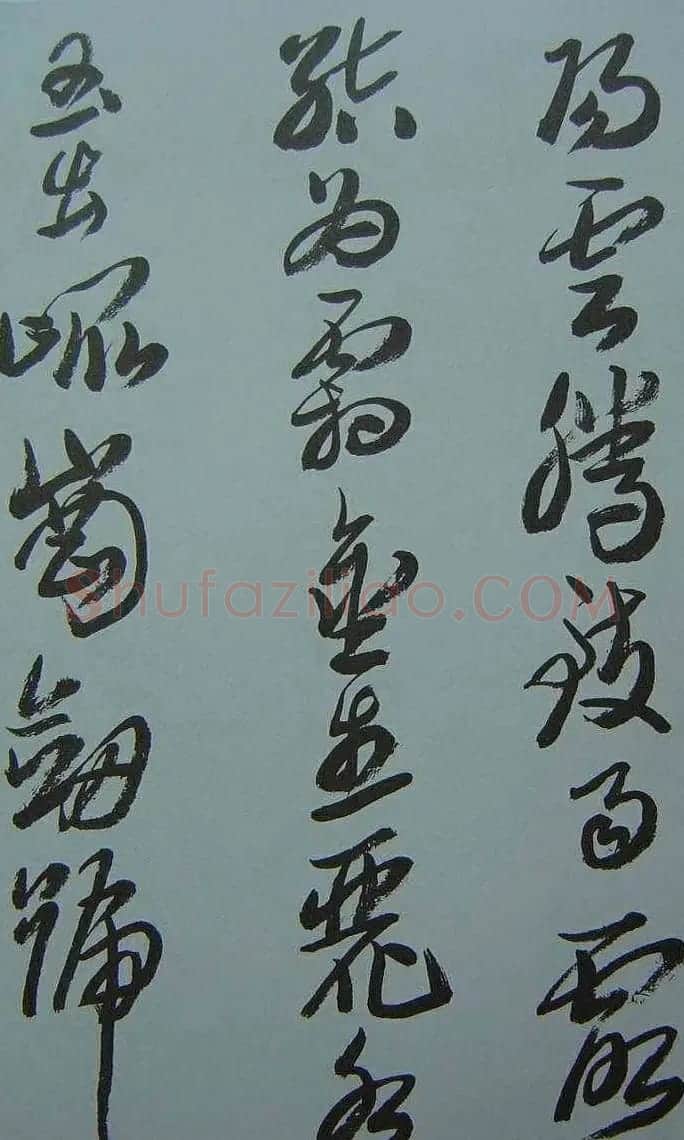 陽雲騰致雨露
結為霜金生麗水
玉出崐崗劍號
Shufaziliao.COM